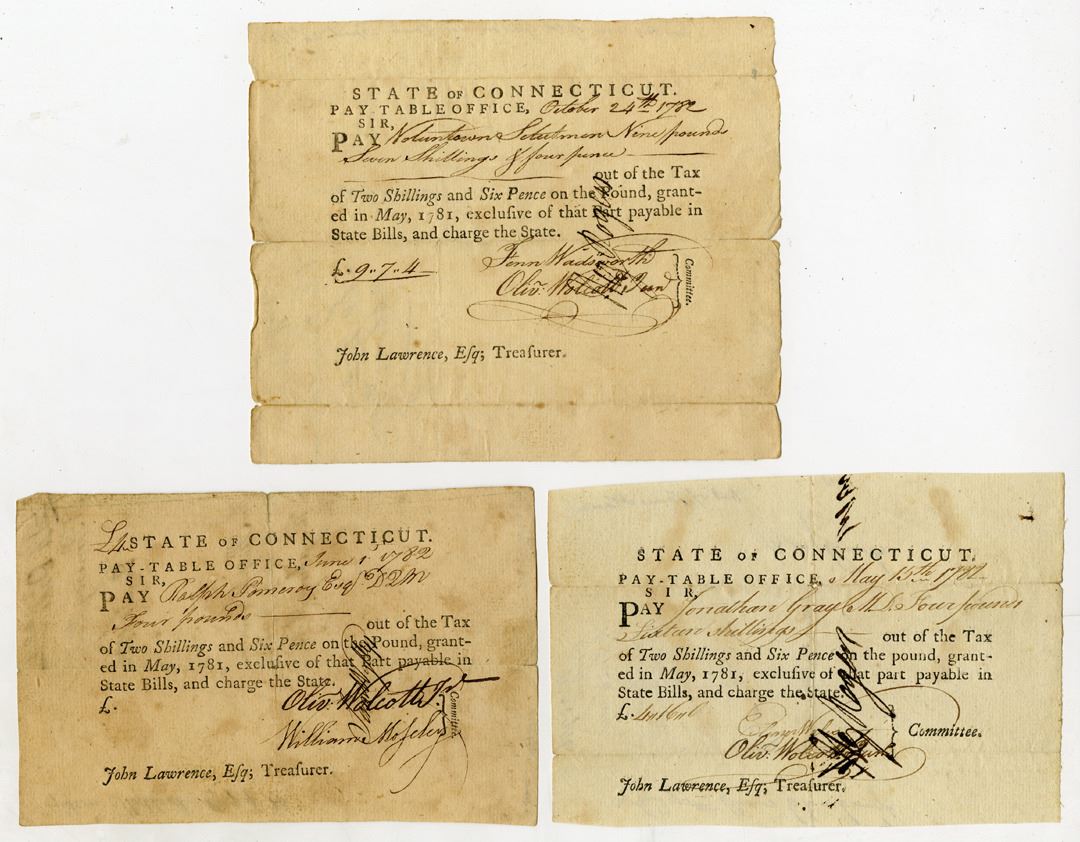 STATE OF CONNECTICUT.
PAY-TABLE OFFICE, October 24th 1782
SIR,
PAY Voluntown Selectmen Nine pounds
Seven Shillings & four pence
out of the Tax
of Two Shillings and Six Pence on the Pound, grant-
ed in May, 1781, excluſive of that Part payable in
State Bills, and charge the State.
£. 9.. 7.. 4
Fenn Wadsworth
Olivr. Wolcott Jun
Committee.
John Lawrence, Eſq; Treaſurer.
£4
STATE OF CONNECTICUT.
PAY-TABLE OFFICE, June 1st 1782
SIR,
PAY Ralph Pomeroy Esqr. DQM
Four pounds
out of the Tax
of Two Shillings and Six Pence on the Pound, grant-
ed in May, 1781, excluſive of that Part payable in
State Bills, and charge the State.
£.
Olivr. Wolcott Jr
William Moſeley
Committee.
John Lawrence, Eſq; Treaſurer.
STATE OF CONNECTICUT.
PAY-TABLE OFFICE, May 15th 1782
SIR,
PAY Jonathan Gray Four pounds
Sixteen Shillings
out of the Tax
of Two Shillings and Six Pence on the pound, grant-
ed in May, 1781, excluſive of that part payable in
State Bills, and charge the State.
£.
Olivr. Wolcott Jun
Committee.
John Lawrence, Eſq; Treaſurer.